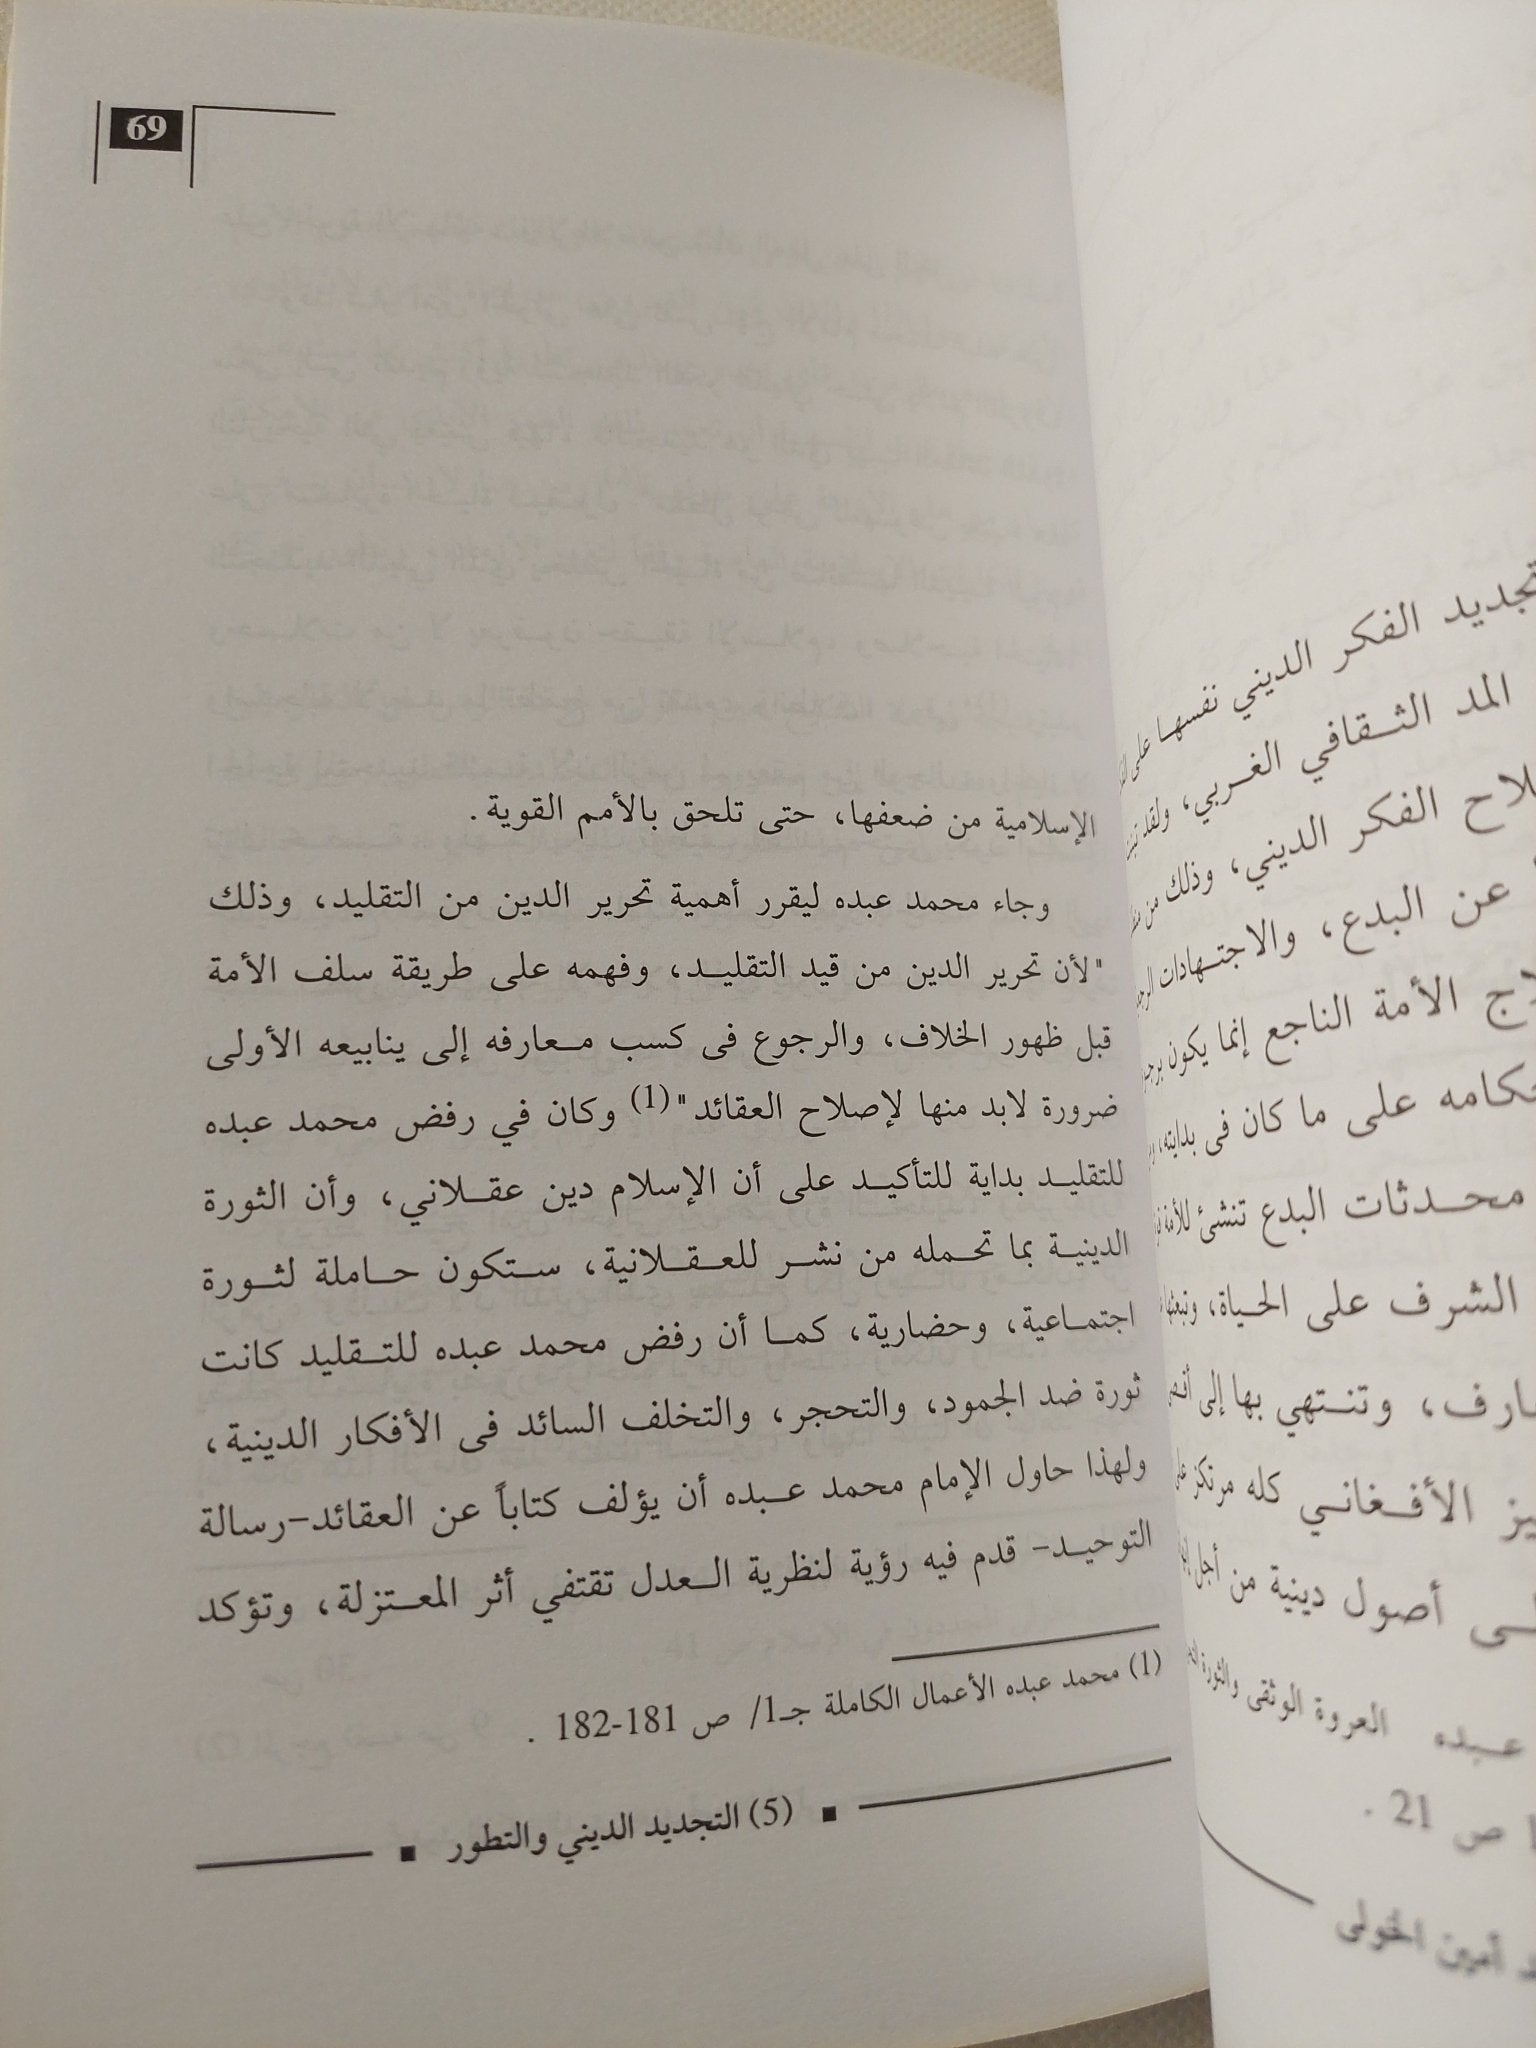 تجديد الفكر الديني نفسها على
المد الثقافي الغربي، ولقد
الفكر الديني، وذلك من
عن البدع، والاجتهادات
الأمة الناجع إنما يكون
على ما كان فى بدايته،
محدثات البدع تنشئ للأمة
الشرف على الحياة،
وتنتهي بها إلى
الأفغاني كله مرتكز
أصول دينية من أجل
العروة الوثقى والثورة
ص 21 .
أمين الخولى
69
الإسلامية من ضعفها، حتى تلحق بالأمم القوية.
وجاء محمد عبده ليقرر أهمية تحرير الدين من التقليد، وذلك
"لأن تحرير الدين من قيد التقليد، وفهمه على طريقة سلف الأمة
قبل ظهور الخلاف، والرجوع فى كسب معارفه إلى ينابيعه الأولى
ضرورة لابد منها لإصلاح العقائد"(1) وكان في رفض محمد عبده
للتقليد بداية للتأكيد على أن الإسلام دين عقلاني، وأن الثورة
الدينية بما تحمله من نشر للعقلانية، ستكون حاملة لثورة
اجتماعية، وحضارية، كما أن رفض محمد عبده للتقليد كانت
ثورة ضد الجمود، والتحجر، والتخلف السائد فى الأفكار الدينية،
ولهذا حاول الإمام محمد عبده أن يؤلف كتاباً عن العقائد-رسالة
التوحيد- قدم فيه رؤية لنظرية العدل تقتفي أثر المعتزلة، وتؤكد
(1) محمد عبده الأعمال الكاملة جـ1/ ص 181-182 .
(5) التجديد الديني والتطور